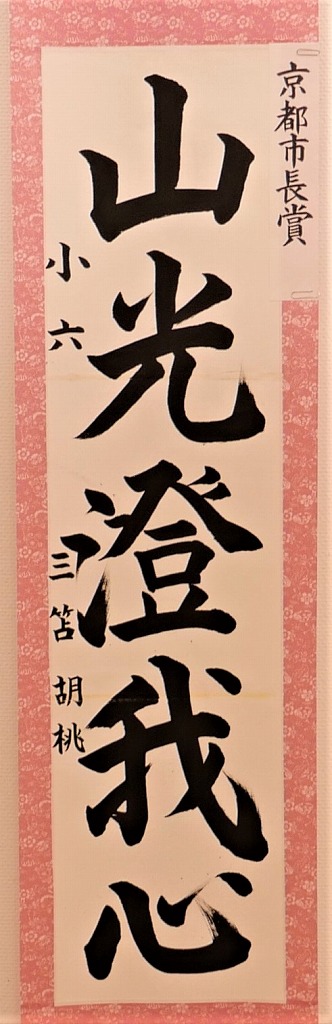 京都市長賞
山光澄我心
小六 三笘胡桃